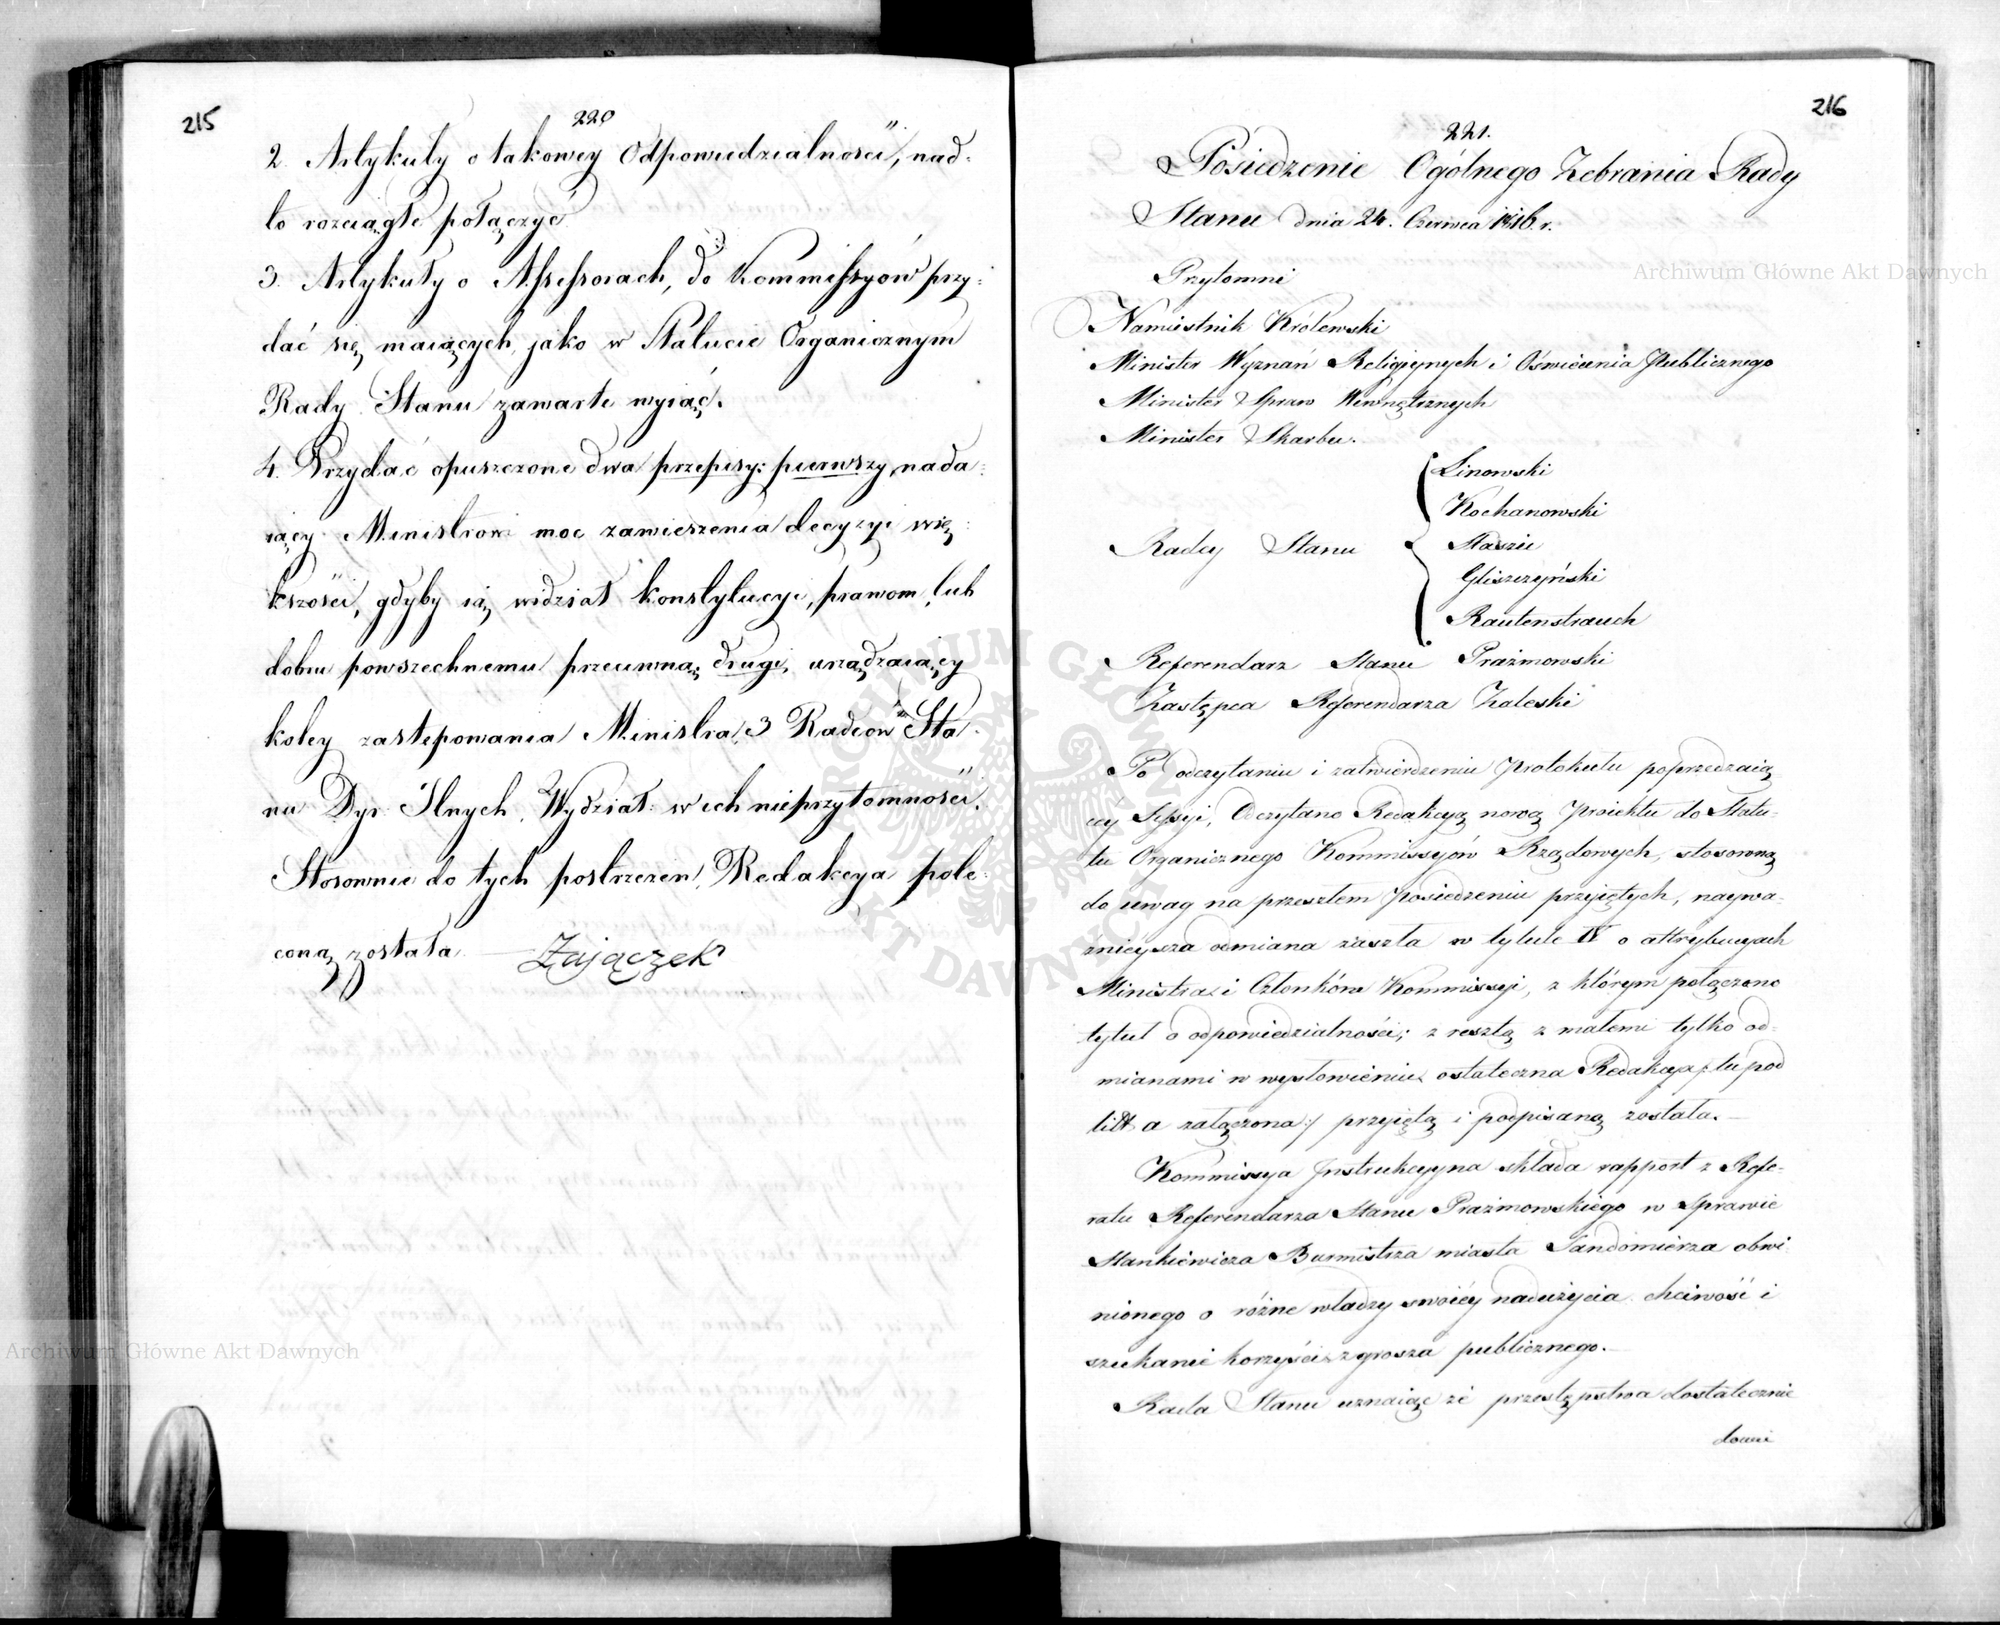 215
220
2. Artykuły o takowey Odpowiedzialności, nad-
to rozciągłe połączyć
3. Artykuły o Assessorach, do Kommissyów przy-
dać się maiących, jako w Statucie Organicznym
Rady Stanu zawarte wyiąć.
4. Przydać opuszczone dwa przepisy: pierwszy nada-
iący Ministrowi moc zawieszenia decyzyi wię-
kszości, gdyby ią widział konstytucyi, prawom, lub
dobru powszechnemu przeciwną; drugi, urządzaiący
koley zastepowania Ministra 3 Radców Sta-
nu Dyr: Ilnych Wydział: w ich nieprzytomności.
Stosownie do tych postrzeżeń, Redakcya pole-
coną została.
Zajączek
216
221.
Posiedzenie Ogólnego Zebrania Rady
Stanu dnia 24. Czerwca 1816 r.
Przytomni
Namiestnik Królewski
Minister Wyznań Religiynych i Oświecenia Publicznego
Minister Spraw Wewnętrznych
Minister Skarbu.
Linowski
Kochanowski
Radcy Stanu Staszic
Gliszczyński
Rautenstrauch
Referendarz Stanu Prażmowski
Zastępca Referendarza Zaleski
Po odczytaniu i zatwierdzeniu Protokułu poprzedzaią-
cey Sessyi, Odczytano Redakcyą nową Proiektu do Statu-
tu Organicznego Kommissyów Rządowych, stosowną
do uwag na przeszłem Posiedzeniu przyiętych, naywa-
żnieysza odmiana zaszła w tytule IV o attrybucyach
Ministra i Członków Kommissyi, z którym połączono
tytuł o odpowiedzialności; z resztą z małemi tylko od-
mianami w wysłowieniu ostateczna Redakcya /: tu pod
litt. a załączona :/ przyiętą i podpisaną została. —
Kommissya Instrukcyyna składa rapport z Refe-
ratu Referendarza Stanu Prażmowskiego w Sprawie
Stankiewicza Burmistrza miasta Sandomierza obwi-
nionego o różne władzy swoiéy nadużycia chciwość i
szukanie korzyści z grosza publicznego. —
Rada Stanu uznaiąc że przestępstwa dostatecznie
dowie
Archiwum Główne Akt Dawnych
Archiwum Główne Akt Dawnych
ARCHIWUM GŁÓWNE AKT DAWNYCH